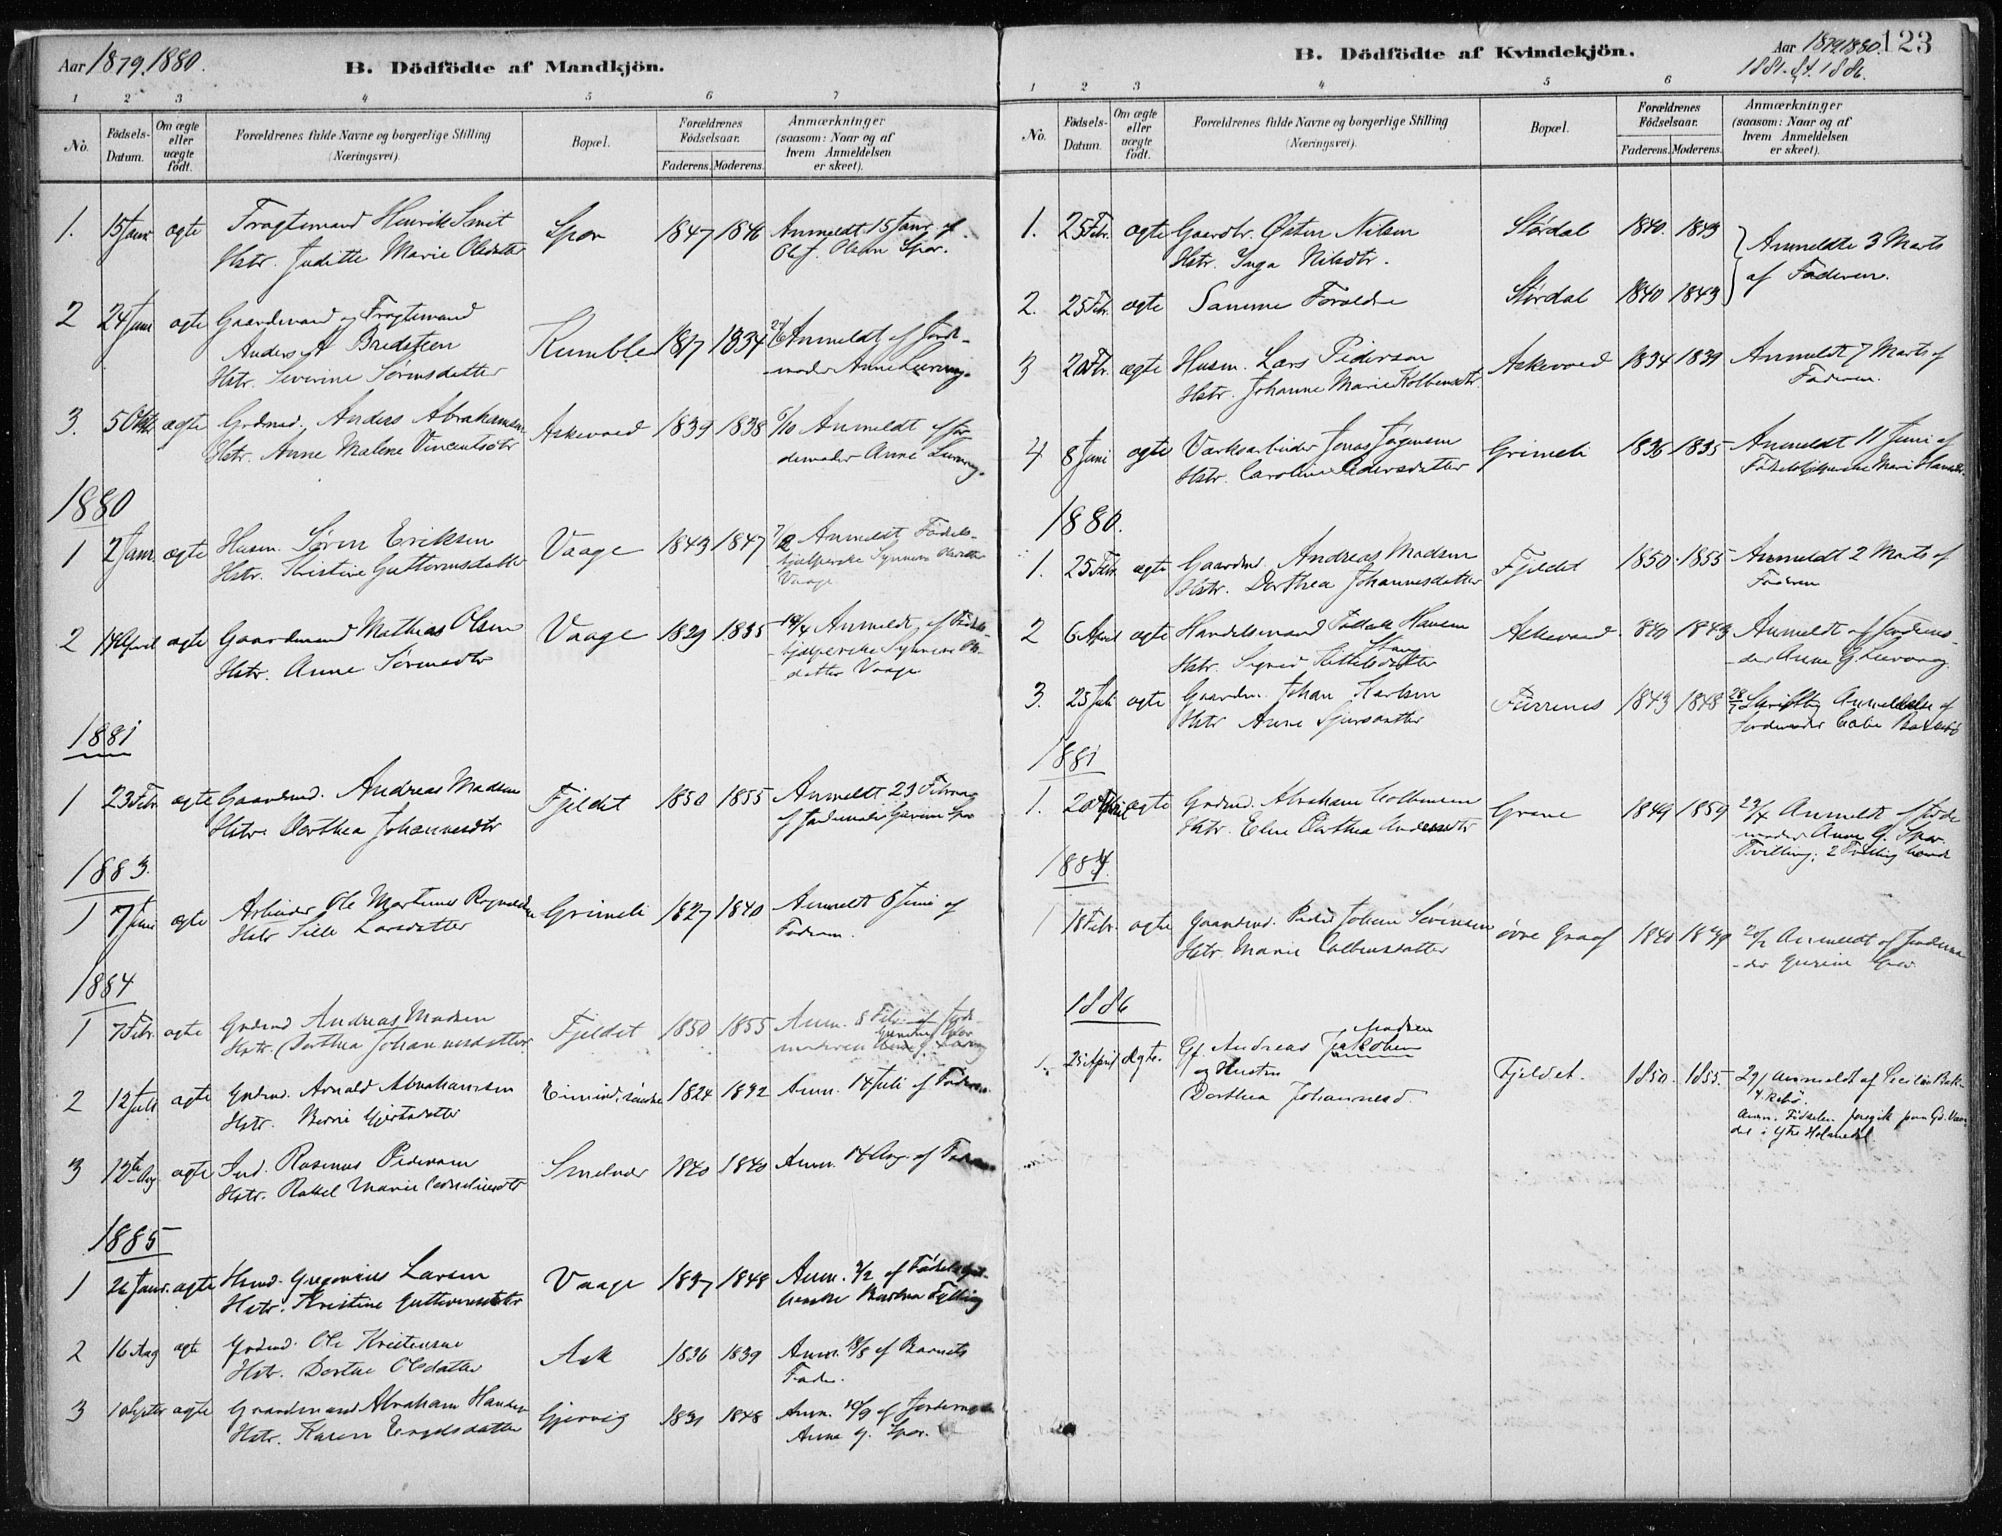 Aar 1879. 1880.
B. Dödfödte af Mandkjön.
1 2 3 4 5 6 7
No. Födsels-Datum. Om ægte eller uægte födt. Forældrenes fulde Navne og borgerlige Stilling (Næringsvei). Bopæl. Forældrenes Födselsaar. Faderens. Moderens. Anmærkninger (saasom: Naar og af hvem Anmeldelsen er skeet).
1. 15 Janr ægte Fragtemand Henrik Smit Spor 1847 1846 Anmeldt 15 Janr af
Hstr. Juditte Marie Olsdatter Olsen Spor.
2 24 Janr ægte Gaardmand og Fragtemand
Anders A Bredsteen Rumble 1817 1834 Anmeldt af Jord-
Hstr. Severine Sørensdatter moder Anne
3. 5 Oktr ægte Grdmd. Anders Abrahamsen Askevold 1839 1838 5/10 Anmeldt af Jor
Hstr. Anne Malene Vincentsdtr demoder Anne
1880
1 2 Janr ægte Husm. Søren Eriksen Vaage 1843 1847 Anmeldt Fødsels-
Hstr. Kristine Guttormsdatter hjælperske Synneve
Vaage
2 14 April ægte Gaardmand Mathias Olsen Vaage 1829 1835 Anmeldt af Fødsels-
Hstr. Anne Sørensdtr hjælperske Synneve Ols-
datter Vaage
1881
1 23 Febr ægte Gaardmd. Andreas Madsen Fjeldet 1850 1855 Anmeldt 23 Februar
Hstr. Dorthea Johannesdtr af Jordemoder Spor
1883.
1 7 Juni ægte Arbeider Ole Martinus Grimeli 1827 1840 Anmeldt 8 Juni af
Hstr Sille Larsdatter Faderen.
1884
1 7 Febr. ægte Grdmd Andreas Madsen Fjeldet 1850 1855 Anm. 8 Feb. af Jorde-
Hstr. Dorthea Johannesdatter moderen
2 12 Juli ægte Grdmd. Arnold Abrahamsen 1824 Anm. 14 Juli af Faderen
Hstr. Berte Gjertsdatter
3 12te Aug ægte Ind. Rasmus Pedersen 1840 1840 Anm. 14 Aug. af Faderen
Hstr. Rakel Marie Corneliusdtr
1885
1 ægte Husmd. Gregorius Larsen Vaage 1837 1848 Anm. 3/2 af Fødselshjæl-
Hstr. Kristine Guttormsdtr perske
2 16 Aug ægte Grdmd. Ole Kristensen Ask 1836 1839 Anm. 18/8 af Barnets
Hstr. Dorthe Olsdatter Fader.
3 ægte Gaardmand Abraham Hansen Gjervig 1848 Anm. af Jordemoder
Hstr. Karen Engelsdatter Anne G. Spor.
B. Dödfödte af Kvindekjön.
Aar 1879. 1880. 123
1881. 84. 1886.
1 2 3 4 5 6
No. Födsels-Datum. Om ægte eller uægte födt. Forældrenes fulde Navne og borgerlige Stilling (Næringsvei). Bopæl. Forældrenes Födselsaar. Faderens. Moderens. Anmærkninger (saasom: Naar og af hvem Anmeldelsen er skeet).
1. 25 Febr. ægte Gaardbr. Østen Nilsen Størdal 1840. 1843 Anmeldte 3 Marts
Hstr. Inga Nilsdtr. af Faderen.
2. 25 Febr. ægte Samme Forældre Størdal 1840 1843
3 ægte Husm. Lars Pederson Askevold 1834 1839 Anmeldt 7 Marts af
Hstr. Johanne Marie Kolbensdtr Faderen.
4 8 Juni ægte Værksarbeider Jonas Grimeli 1836 1835 Anmeldt 11 Juni af
Hstr. Caroline Pedersdatter Fødselshjælperske Mari
1880.
1. 25 Febr. ægte Gaardmd Andreas Madsen Fjeldet 1850. 1855 Anmeldt 2 Marts af
Hstr. Dorthea Johannesdatter Faderen
2 6 April ægte Handelsmand Hansen Askevold 1843 Anmeldt af Jordemo-
Stang
Hstr. Sigrid Kittelsdatter der Anne G.
3. 25 Juli ægte Gaardm. Johan Karlsen Furrenes 1843 1848 28/7 Skriftlig Anmeldelse af
Hstr Anne Sjursdatter Jordemoder
1881
1. ægte Grdmd. Abraham Kolbensen Grane 1849 1859 Anmeldt af Jorde
Hstr. Eline Dorthea Andersdtr moder Anne G. Spor.
Tvilling; 2 Tvilling levende
1884.
1 18 Febr. ægte Gaardmd. Peder Johan Sørensen øvre Graaf 1840 1849 20/2 Anmeldt af Jordemo
Hstr. Marie Colbensdatter -der Gurine Spor
1886
Madsen
1. 25 April ægte. Gf. Andreas Jakobsen
og Hustru Fjeldet. 1850. 1855. 29/4 Anmeldt af Cecilie Bak-
Dorthea Johannesd. Rebø.
Anm. Fødselen foregik paa Gd. Van-
del i Ytre Holmedal.